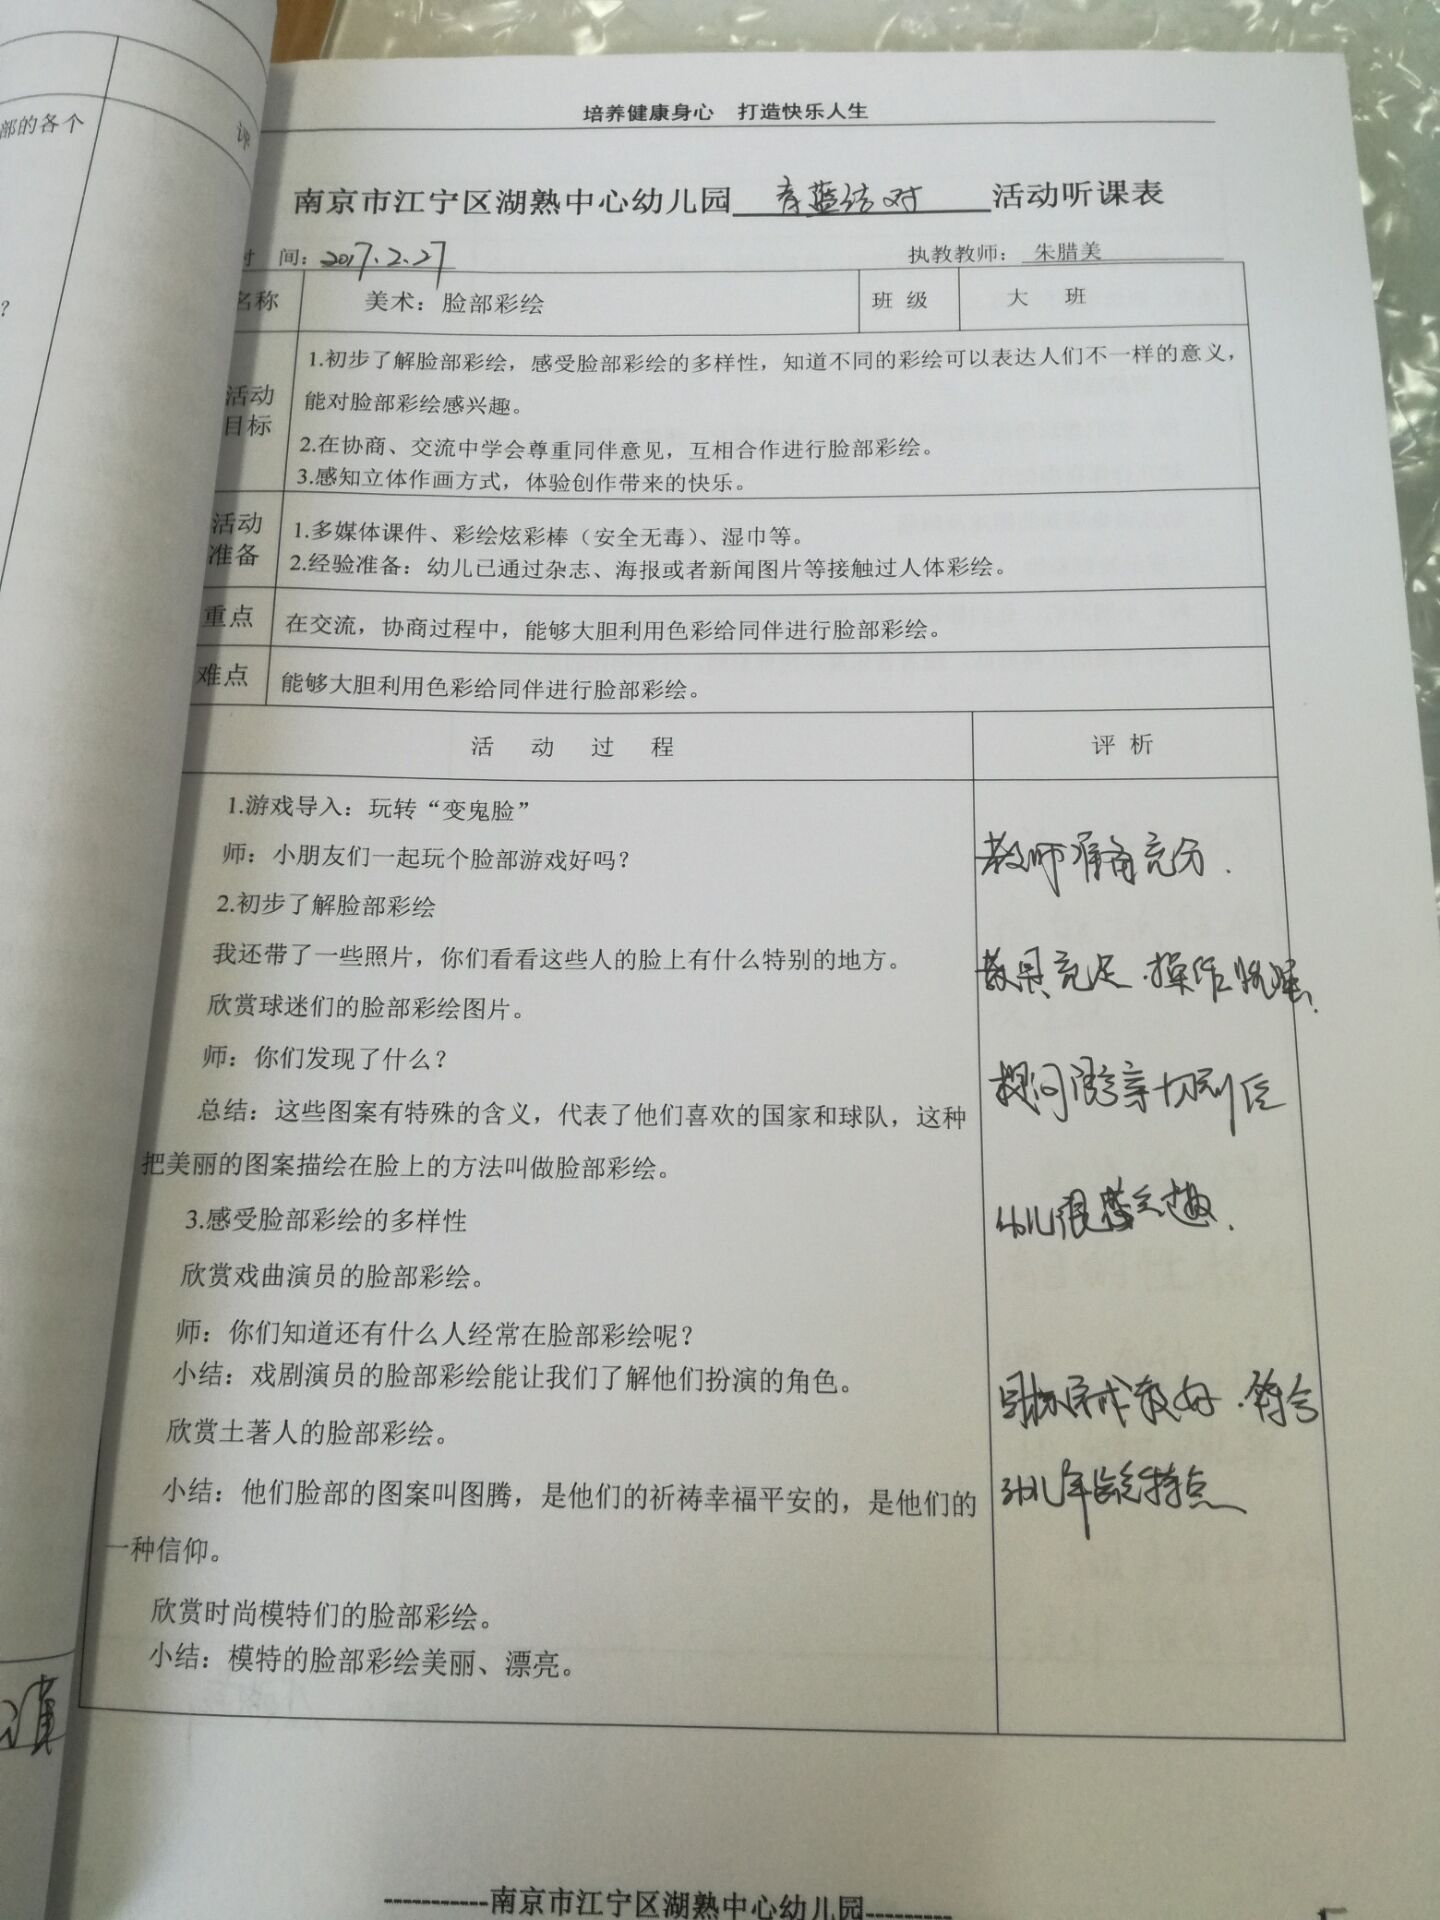 部的各个
评
?
培养健康身心 打造快乐人生
南京市江宁区湖熟中心幼儿园 青蓝结对 活动听课表
时 间: 2017.2.27 执教教师: 朱腊美
名称 美术: 脸部彩绘 班 级 大 班
活动目标
1.初步了解脸部彩绘，感受脸部彩绘的多样性，知道不同的彩绘可以表达人们不一样的意义，
能对脸部彩绘感兴趣。
2.在协商、交流中学会尊重同伴意见，互相合作进行脸部彩绘。
3.感知立体作画方式，体验创作带来的快乐。
活动准备
1.多媒体课件、彩绘炫彩棒（安全无毒）、湿巾等。
2.经验准备：幼儿已通过杂志、海报或者新闻图片等接触过人体彩绘。
重点 在交流，协商过程中，能够大胆利用色彩给同伴进行脸部彩绘。
难点 能够大胆利用色彩给同伴进行脸部彩绘。
活 动 过 程 评 析
1.游戏导入：玩转“变鬼脸”
师：小朋友们一起玩个脸部游戏好吗？
教师准备充分.
2.初步了解脸部彩绘
我还带了一些照片，你们看看这些人的脸上有什么特别的地方。
教具充足.操作
欣赏球迷们的脸部彩绘图片。
师：你们发现了什么？
提问语言亲切到位
总结：这些图案有特殊的含义，代表了他们喜欢的国家和球队，这种
把美丽的图案描绘在脸上的方法叫做脸部彩绘。
3.感受脸部彩绘的多样性
幼儿很感兴趣.
欣赏戏曲演员的脸部彩绘。
师：你们知道还有什么人经常在脸部彩绘呢？
小结：戏剧演员的脸部彩绘能让我们了解他们扮演的角色。
目标完成较好.符合
欣赏土著人的脸部彩绘。
小结：他们脸部的图案叫图腾，是他们的祈祷幸福平安的，是他们的
幼儿年龄特点
一种信仰。
欣赏时尚模特们的脸部彩绘。
小结：模特的脸部彩绘美丽、漂亮。
-----------南京市江宁区湖熟中心幼儿园---------